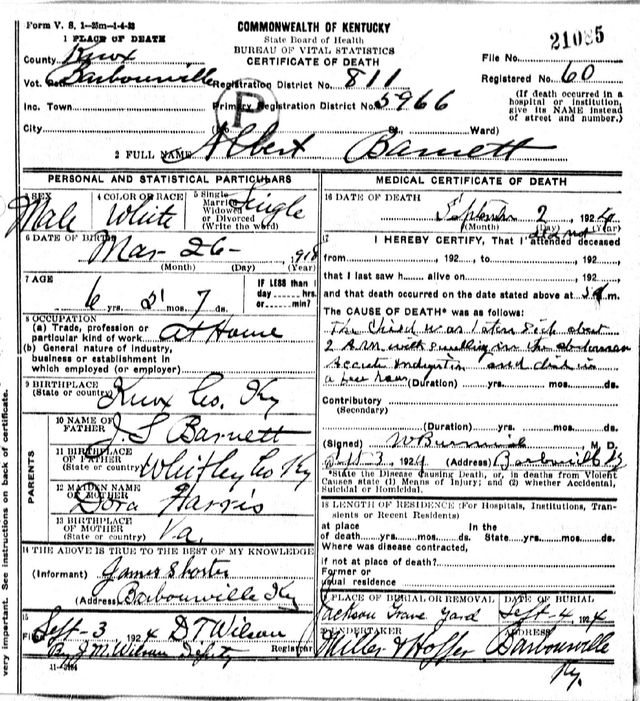 Form V. S. 1-25m-1-4-23
COMMONWEALTH OF KENTUCKY
State Board of Health
BUREAU OF VITAL STATISTICS
CERTIFICATE OF DEATH
1 PLACE OF DEATH
County Knox
File No. 21085
Vot. Pct. Barbourville Registration District No. 811
Registered No. 60
Inc. Town Primary Registration District No. 5966
(If death occurred in a
hospital or institution,
give its NAME instead
of street and number.)
P
City (No. Ward)
2 FULL NAME Albert Barnett
PERSONAL AND STATISTICAL PARTICULARS
3 SEX Male
4 COLOR OR RACE White
5 Single
Married
Widowed
or Divorced
(Write the word) Single
6 DATE OF BIRTH Mar 26 - 1918
(Month) (Day) (Year)
7 AGE 6 yrs. 5 mos. 7 ds.
IF LESS than 1
day ---- hrs.
or ---- min?
8 OCCUPATION
(a) Trade, profession or
particular kind of work at Home
(b) General nature of industry,
business or establishment in
which employed (or employer)
9 BIRTHPLACE
(State or country) Knox Co. Ky
PARENTS
10 NAME OF
FATHER J. S Barnett
11 BIRTHPLACE
OF FATHER
(State or country) Whitley Co Ky
12 MAIDEN NAME
OF MOTHER Dora Harris
13 BIRTHPLACE
OF MOTHER
(State or country) Va.
14 THE ABOVE IS TRUE TO THE BEST OF MY KNOWLEDGE
(Informant) James
(Address) Barbourville Ky
15
Filed Sept-3 1924 D T Wilson
By J. M. Wilson Deputy Registrar
11-3184
MEDICAL CERTIFICATE OF DEATH
16 DATE OF DEATH
September 2, 1924
(Month) (Day) (Year)
17 I HEREBY CERTIFY, That I did not attended deceased
from, 192, to, 192
that I last saw h alive on, 192
and that death occurred on the date stated above at m.
The CAUSE OF DEATH* was as follows:
The Child was taken Sick about
2 A.M. with swelling in the abdomen
Acute Indigestion and died in
a few hours
(Duration) yrs. mos. ds.
Contributory
(Secondary)
(Duration) yrs. mos. ds.
(Signed) M. D.
Sept 3, 1924 (Address) Barbourville Ky
*State the Disease Causing Death, or, in deaths from Violent
Causes state (1) Means of Injury; and (2) whether Accidental,
Suicidal or Homicidal.
18 LENGTH OF RESIDENCE (For Hospitals, Institutions, Tran-
sients or Recent Residents)
At place In the
of death yrs. mos. ds. State yrs. mos. ds.
Where was disease contracted,
if not at place of death?
Former or
usual residence
19 PLACE OF BURIAL OR REMOVAL DATE OF BURIAL
Jackson Grave Yard Sept-4, 1924
20 UNDERTAKER ADDRESS
Miller & Hoffer Barbourville
Ky.
very important. See instructions on back of certificate.